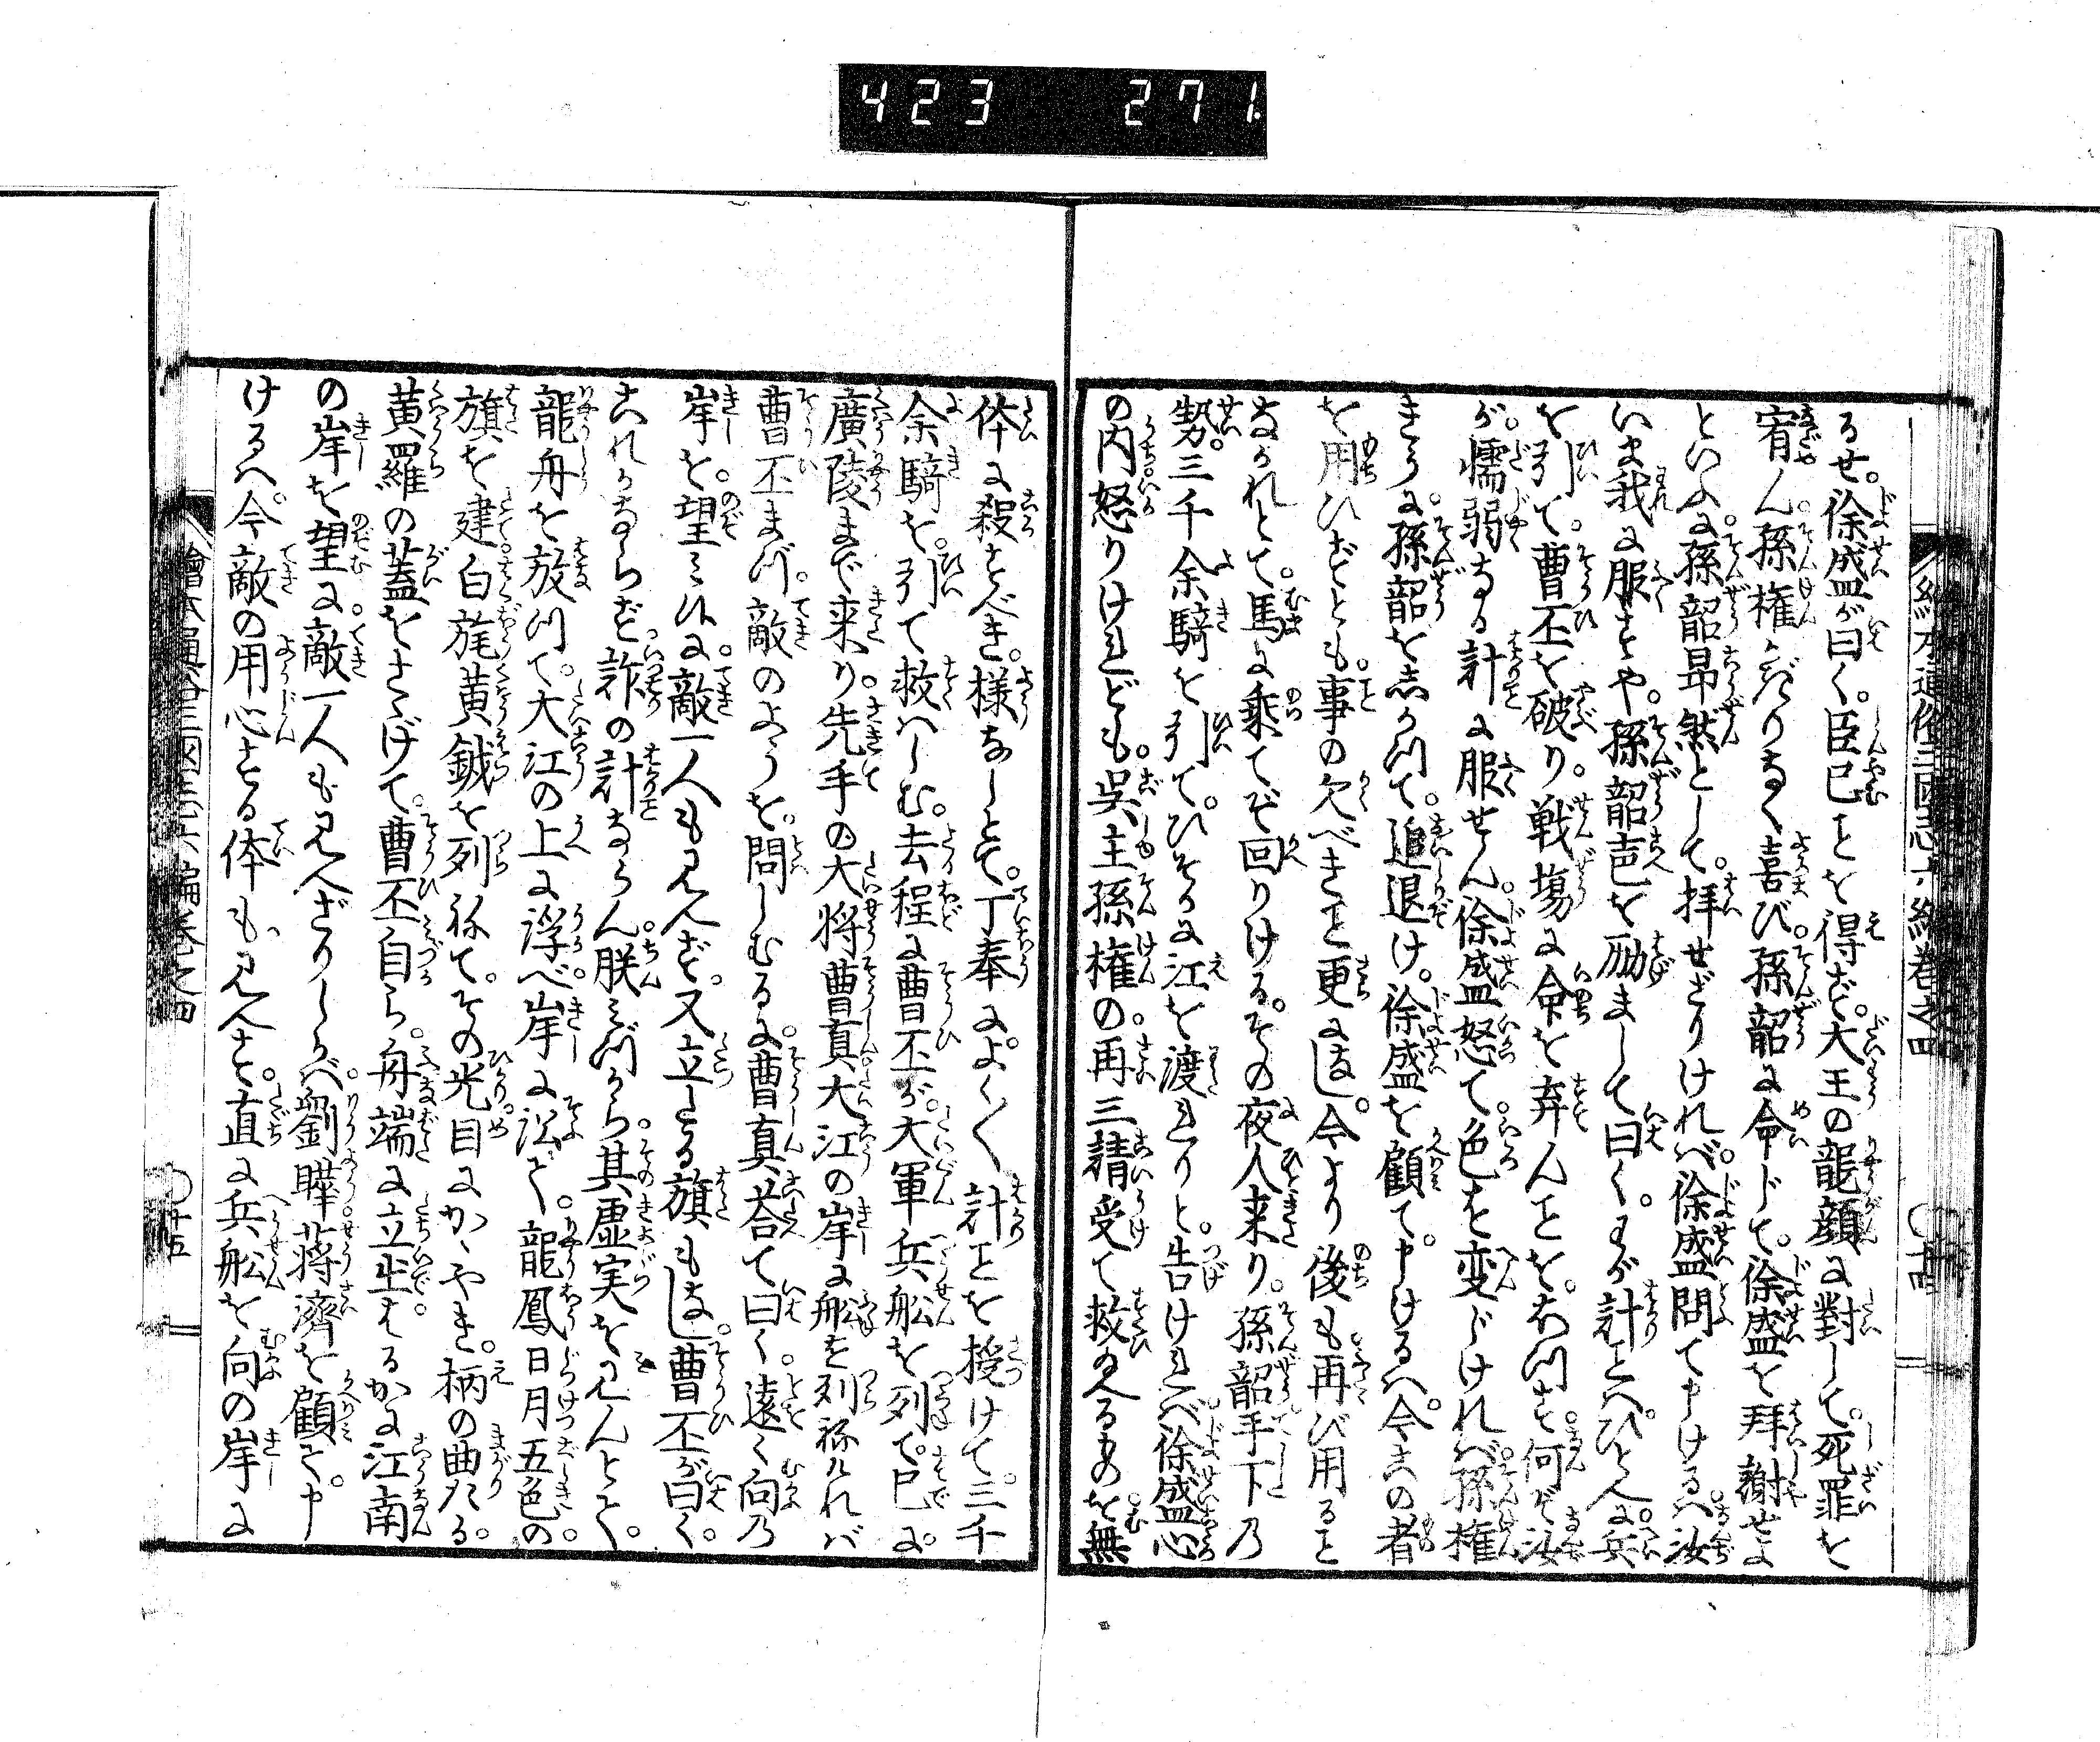 423 271.
るせ。徐盛が曰く。臣已ことを得ず。大王の龍顔に對して。死罪を
宥ん。孫権かぎりなく喜び。孫韶に命じて。徐盛を拜謝せよ
といふに。孫韶昂然として。拝せざりければ。徐盛問て申けるハ汝
いま我に服すや。孫韶声を励まして曰く。わが計ことハ。ひとへに兵
を引て。曹丕を破り。戦場に命を弃んことを。おもつす。何ぞ汝
が。懦弱なる計に服せん。徐盛怒て。色を変じければ。孫権
きうに。孫韶を志かつて。追退け。徐盛を顧て。申けるハ。今この者
を用ひずとも。事の欠べきこと更になし。今より後も再び用ること
なかれとて。馬に乗てぞ回りける。その夜人来り。孫韶手下の
勢。三千余騎を引て。ひそかに江を渡れりと。告けれバ徐盛心
の内怒りけれども。呉主孫権の。再三請受て救給へるものを無
体に殺すべき。様なしとて。丁奉に。よく〱計ことを授けて。三千
余騎を。引て救ハしむ。去程に曹丕が。大軍兵舩を列て。已に。
廣陵まで来り。先手の大将曹真大江の岸に舩を列ぬれバ
曹丕まづ。敵のようを。問しむるに。曹真荅て曰く。遠く向の
岸を。望み候に。敵一人も見へず。又立たる旗もなし。曹丕が曰く。
これかならず詐の計ならん。朕みづから。其虚実を見んとて。
龍舟を放つて。大江の上に浮べ岸に訟ぞ。龍鳳日月五色の。
旗を建。白旄黄鉞を列ねて。その光目にかゝやき。柄の曲たる。
黄羅の蓋をさゝげて。曹丕自ら。舟端に立出。はるかに江南
の岸を望に。敵一人も見へざりしかバ。劉曄。蒋濟を顧て。申
けるハ。今敵の用心する体も。見へず。直に兵舩を向の岸に
十四
十五